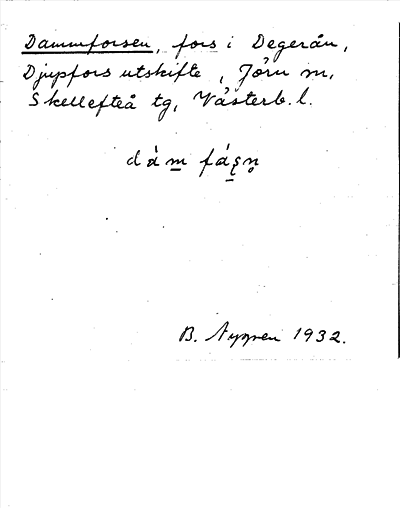 Dammforsen, fors i Degerån,
Djupfors utskifte, Jörn sn,
Skellefteå tg, Västerb. l.
dȧm fáṣṇ
B. Nygren 1932.